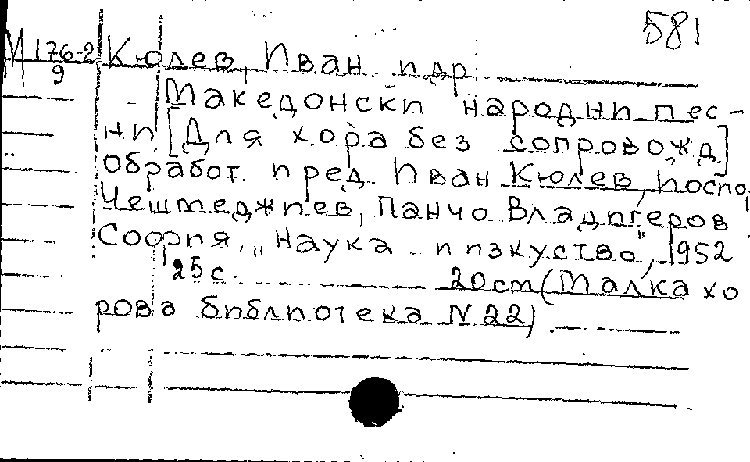 581
М 176-2
9
Кюлев, Иван и др
Македонски народни пес-
ни [Для хора без сопровожд]
Обработ. пред. Иван Кюлев, Иоспо,
Чештеджиев, Панчо Владигеров
София, "Наука и изкуство", 1952
25 с. 20 cm (Малка хо
рова библиотека N 22)